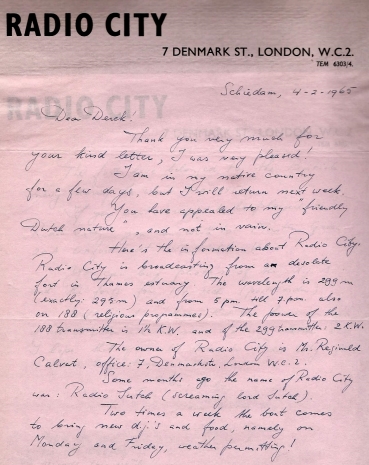 RADIO CITY
7 DENMARK ST., LONDON, W.C.2.
TEM 6303/4.
Schiedam, 4-2-1965
Dear Derek.
Thank you very much for
your kind letter, I was very pleased!
I am in my native country
for a few days, but I will return next week.
You have appealed to my "friendly
Dutch nature", and not in vain.
Here's the information about Radio City.
Radio City is broadcasting from an desolate
fort in Thames estuary. The wavelength is 299 m
(exactly: 295 m) and from 5 p.m. till 7 p.m. also
on 188 (religious programmes). The power of the
188 transmitter is 1½ K.W. and of the 299 transmitter: 2 K.W.
The owner of Radio City is Mr. Reginald
Calvert, office: 7, Denmarkstr, London W.C.2.
Some months ago the name of Radio City
was: Radio Sutch (Screaming lord Sutch).
Two times a week the boat comes
to bring new d.j.'s and food, namely on
Monday and Friday, weather permitting!